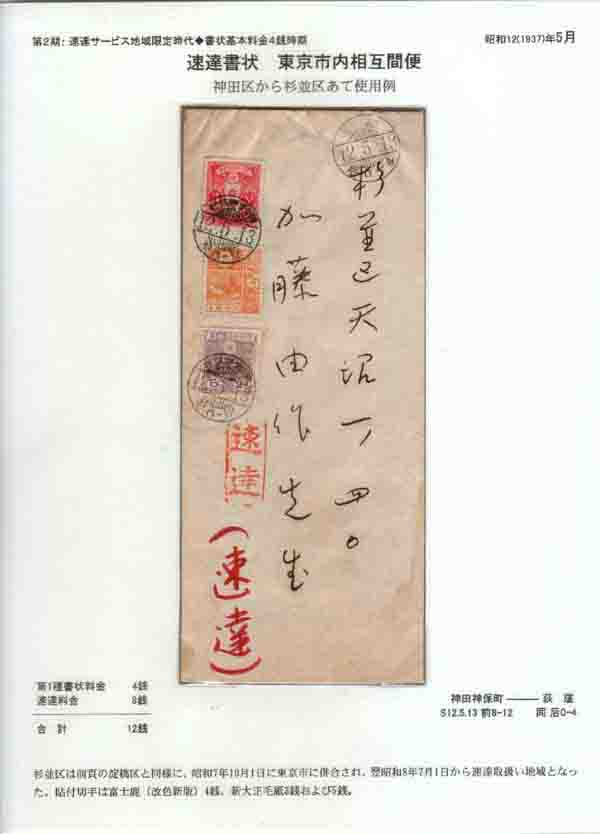 第2期：速達サービス地域限定時代◆書状基本料金4銭時期
昭和12(1937)年5月
速達書状　東京市内相互間便
神田区から杉並区あて使用例
12.5.13
杉並区天沼一ノ四〇
加藤由作先生
速達
(速達)
第1種書状料金　4銭
速達料金　8銭
合計　12銭
神田神保町　———　荻窪
S12.5.13 前8-12　同 后0-4
杉並区は前頁の淀橋区と同様に、昭和7年10月1日に東京市に併合され、翌昭和8年7月1日から速達取扱い地域となっ
た。貼付切手は富士鹿（改色新版）4銭、新大正毛紙3銭および5銭。